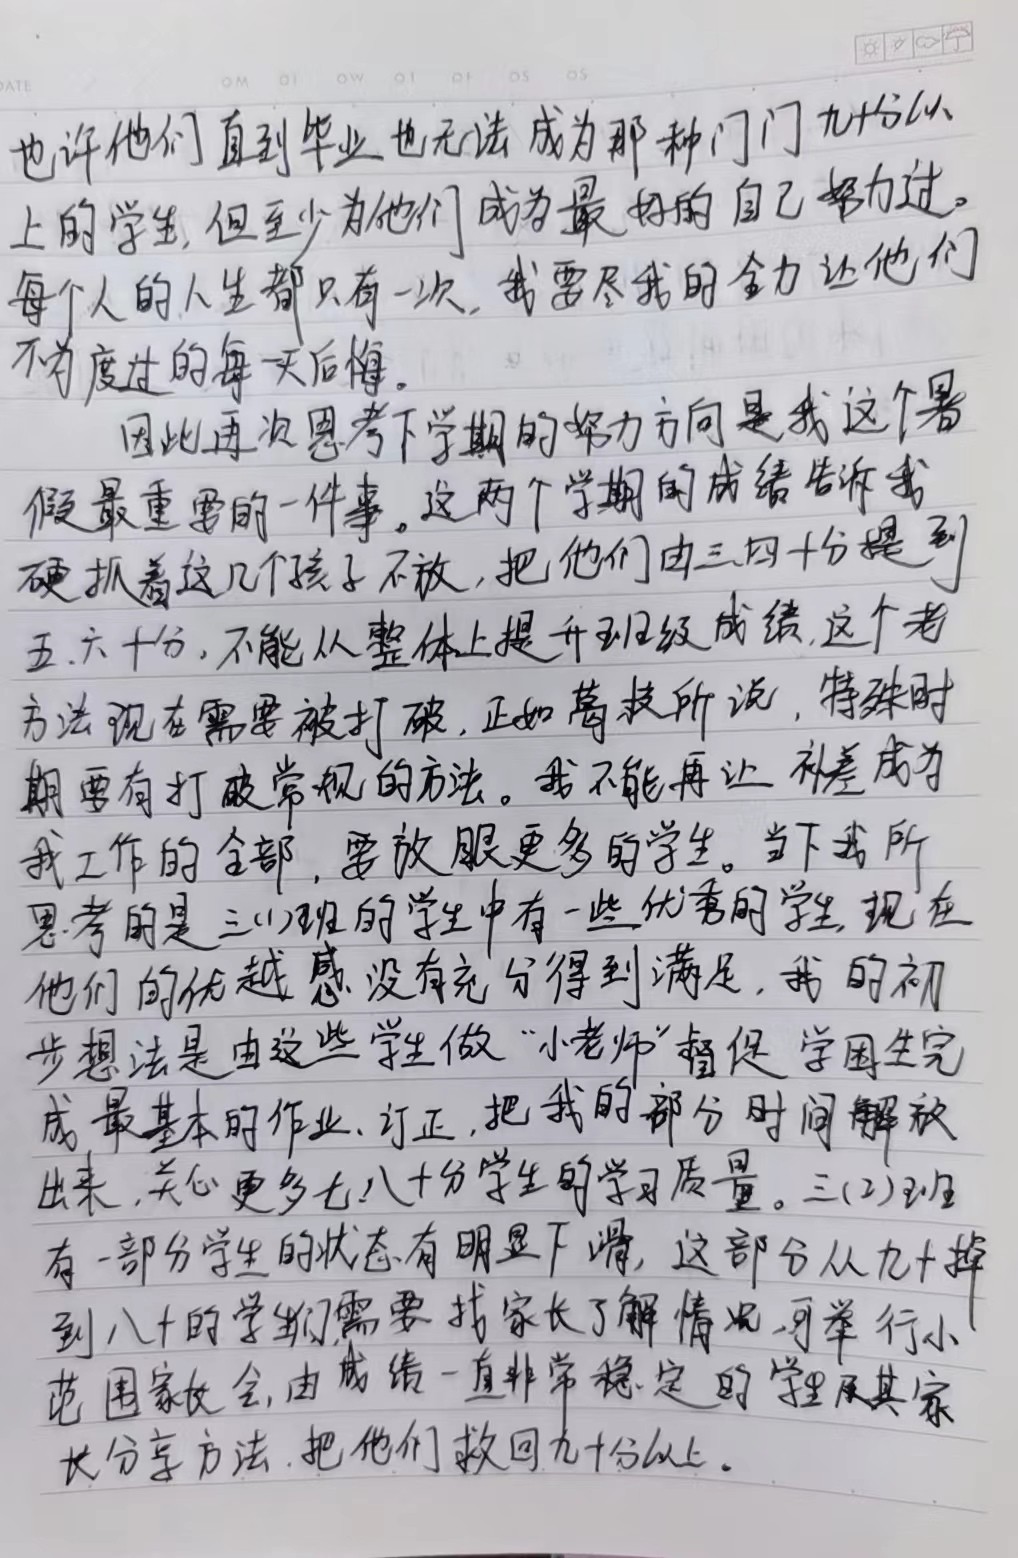 DATE
也许他们直到毕业也无法成为那种门门九十分以
上的学生,但至少为他们成为最好的自己努力过。
每个人的人生都只有一次,我要尽我的全力让他们
不为度过的每一天后悔。
因此再次思考下学期的努力方向是我这个暑
假最重要的一件事。这两个学期的成绩告诉我
硬抓着这几个孩子不放,把他们由三、四十分提到
五、六十分,不能从整体上提升班级成绩,这个老
方法现在需要被打破,正如葛校所说,特殊时
期要有打破常规的方法。我不能再让补差成为
我工作的全部,要放眼更多的学生。当下我所
思考的是三(1)班的学生中有一些优秀的学生,现在
他们的优越感没有充分得到满足,我的初
步想法是由这些学生做“小老师”督促学困生完
成最基本的作业、订正,把我的部分时间解放
出来,关心更多七、八十分学生的学习质量。三(2)班
有一部分学生的状态有明显下滑,这部分从九十掉
到八十的学生们需要找家长了解情况,可举行小
范围家长会,由成绩一直非常稳定的学生及其家
长分享方法,把他们救回九十分以上。